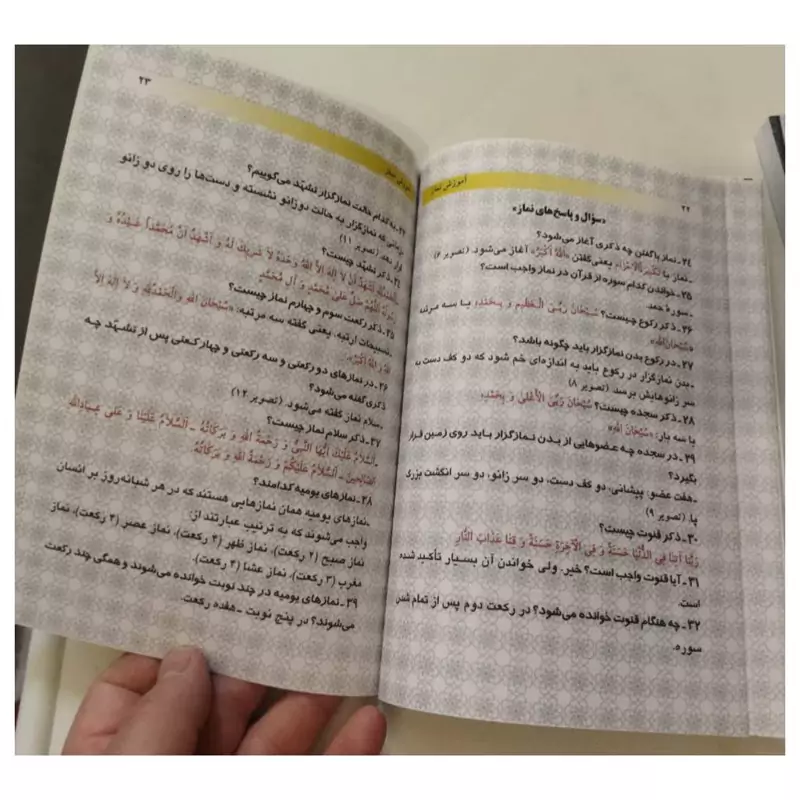 ۲۲
آموزش نماز
«سؤال و پاسخ‌های نماز»
۲۴ـ نماز با گفتن چه ذکری آغاز می‌شود؟
ـ نماز با تَکْبیرَةُ الْاِحْرام، یعنی گفتن «اَللهُ اَکْبَرُ» آغاز می‌شود. (تصویر ۶)
۲۵ـ خواندن کدام سوره از قرآن در نماز واجب است؟
ـ سورهٔ حمد.
۲۶ـ ذکر رکوع چیست؟ سُبْحَانَ رَبِّیَ الْعَظیمِ وَ بِحَمْدِهِ یا سه مرتبه
«سُبْحَانَ اللهِ»
۲۷ـ در رکوع بدن نمازگزار باید چگونه باشد؟
ـ بدن نمازگزار در رکوع باید به اندازه‌ای خم شود که دو کف دست به
سر زانوهایش برسد. (تصویر ۸)
۲۸ـ ذکر سجده چیست؟ سُبْحَانَ رَبِّیَ الْأَعْلیٰ وَ بِحَمْدِهِ
یا سه بار: «سُبْحَانَ اللهِ»
۲۹ـ در سجده چه عضوهایی از بدن نمازگزار باید روی زمین قرار
بگیرد؟
ـ هفت عضو: پیشانی، دو کف دست، دو سر زانو، دو سر انگشت بزرگ
پا. (تصویر ۹)
۳۰ـ ذکر قنوت چیست؟
رَبَّنَا آتِنَا فِی الدُّنْیَا حَسَنَةً وَ فِی الْآخِرَةِ حَسَنَةً وَ قِنَا عَذَابَ النَّارِ
۳۱ـ آیا قنوت واجب است؟ خیر. ولی خواندن آن بسیار تأکید شده
است.
۳۲ـ چه هنگام قنوت خوانده می‌شود؟ در رکعت دوم پس از تمام شدن
سوره.
۲۳
به کدام حالت نمازگزار تشهّد می‌گوییم؟
زمانی که نمازگزار به حالت دوزانو نشسته و دست‌ها را روی دو زانو
قرار دهد. (تصویر ۱۱)
ذکر تشهّد چیست؟
اَلْحَمْدُلِلّهِ اَشْهَدُ اَنْ لا اِلهَ اِلَّا اللهُ وَحْدَهُ لا شَریکَ لَهُ وَ اَشْهَدُ اَنَّ مُحَمَّداً عَبْدُهُ وَ
رَسُولُهُ اَللّهُمَّ صَلِّ عَلیٰ مُحَمَّدٍ وَ آلِ مُحَمَّدٍ
۳۵ـ ذکر رکعت سوم و چهارم نماز چیست؟
ـ تسبیحات اربعه. یعنی گفته سه مرتبه: «سُبْحَانَ اللهِ وَالْحَمْدُلِلّهِ وَ لا اِلهَ اِلَّا
اللهُ وَ اللهُ اَکْبَرُ».
۳۶ـ در نمازهای دو رکعتی و سه رکعتی و چهار رکعتی پس از تشهّد چه
ذکری گفته می‌شود؟
ـ سلام نماز گفته می‌شود. (تصویر ۱۲)
۳۷ـ ذکر سلام نماز چیست؟
ـ اَلسَّلامُ عَلَیْکَ اَیُّهَا النَّبِیُّ وَ رَحْمَةُ اللهِ وَ بَرَکَاتُهُ ـ اَلسَّلامُ عَلَیْنَا وَ عَلیٰ عِبَادِاللهِ
الصَّالِحِینَ ـ اَلسَّلامُ عَلَیْکُمْ وَ رَحْمَةُ اللهِ وَ بَرَکَاتُهُ
۳۸ـ نمازهای یومیه کدامند؟
ـ نمازهای یومیه همان نمازهایی هستند که در هر شبانه‌روز بر انسان
واجب می‌شوند که به ترتیب عبارتند از:
نماز صبح (۲ رکعت)، نماز ظهر (۴ رکعت)، نماز عصر (۴ رکعت)، نماز
مغرب (۳ رکعت)، نماز عشا (۴ رکعت).
۳۹ـ نمازهای یومیه در چند نوبت خوانده می‌شوند و همگی چند رکعت
می‌شوند؟ در پنج نوبت ـ هفده رکعت.